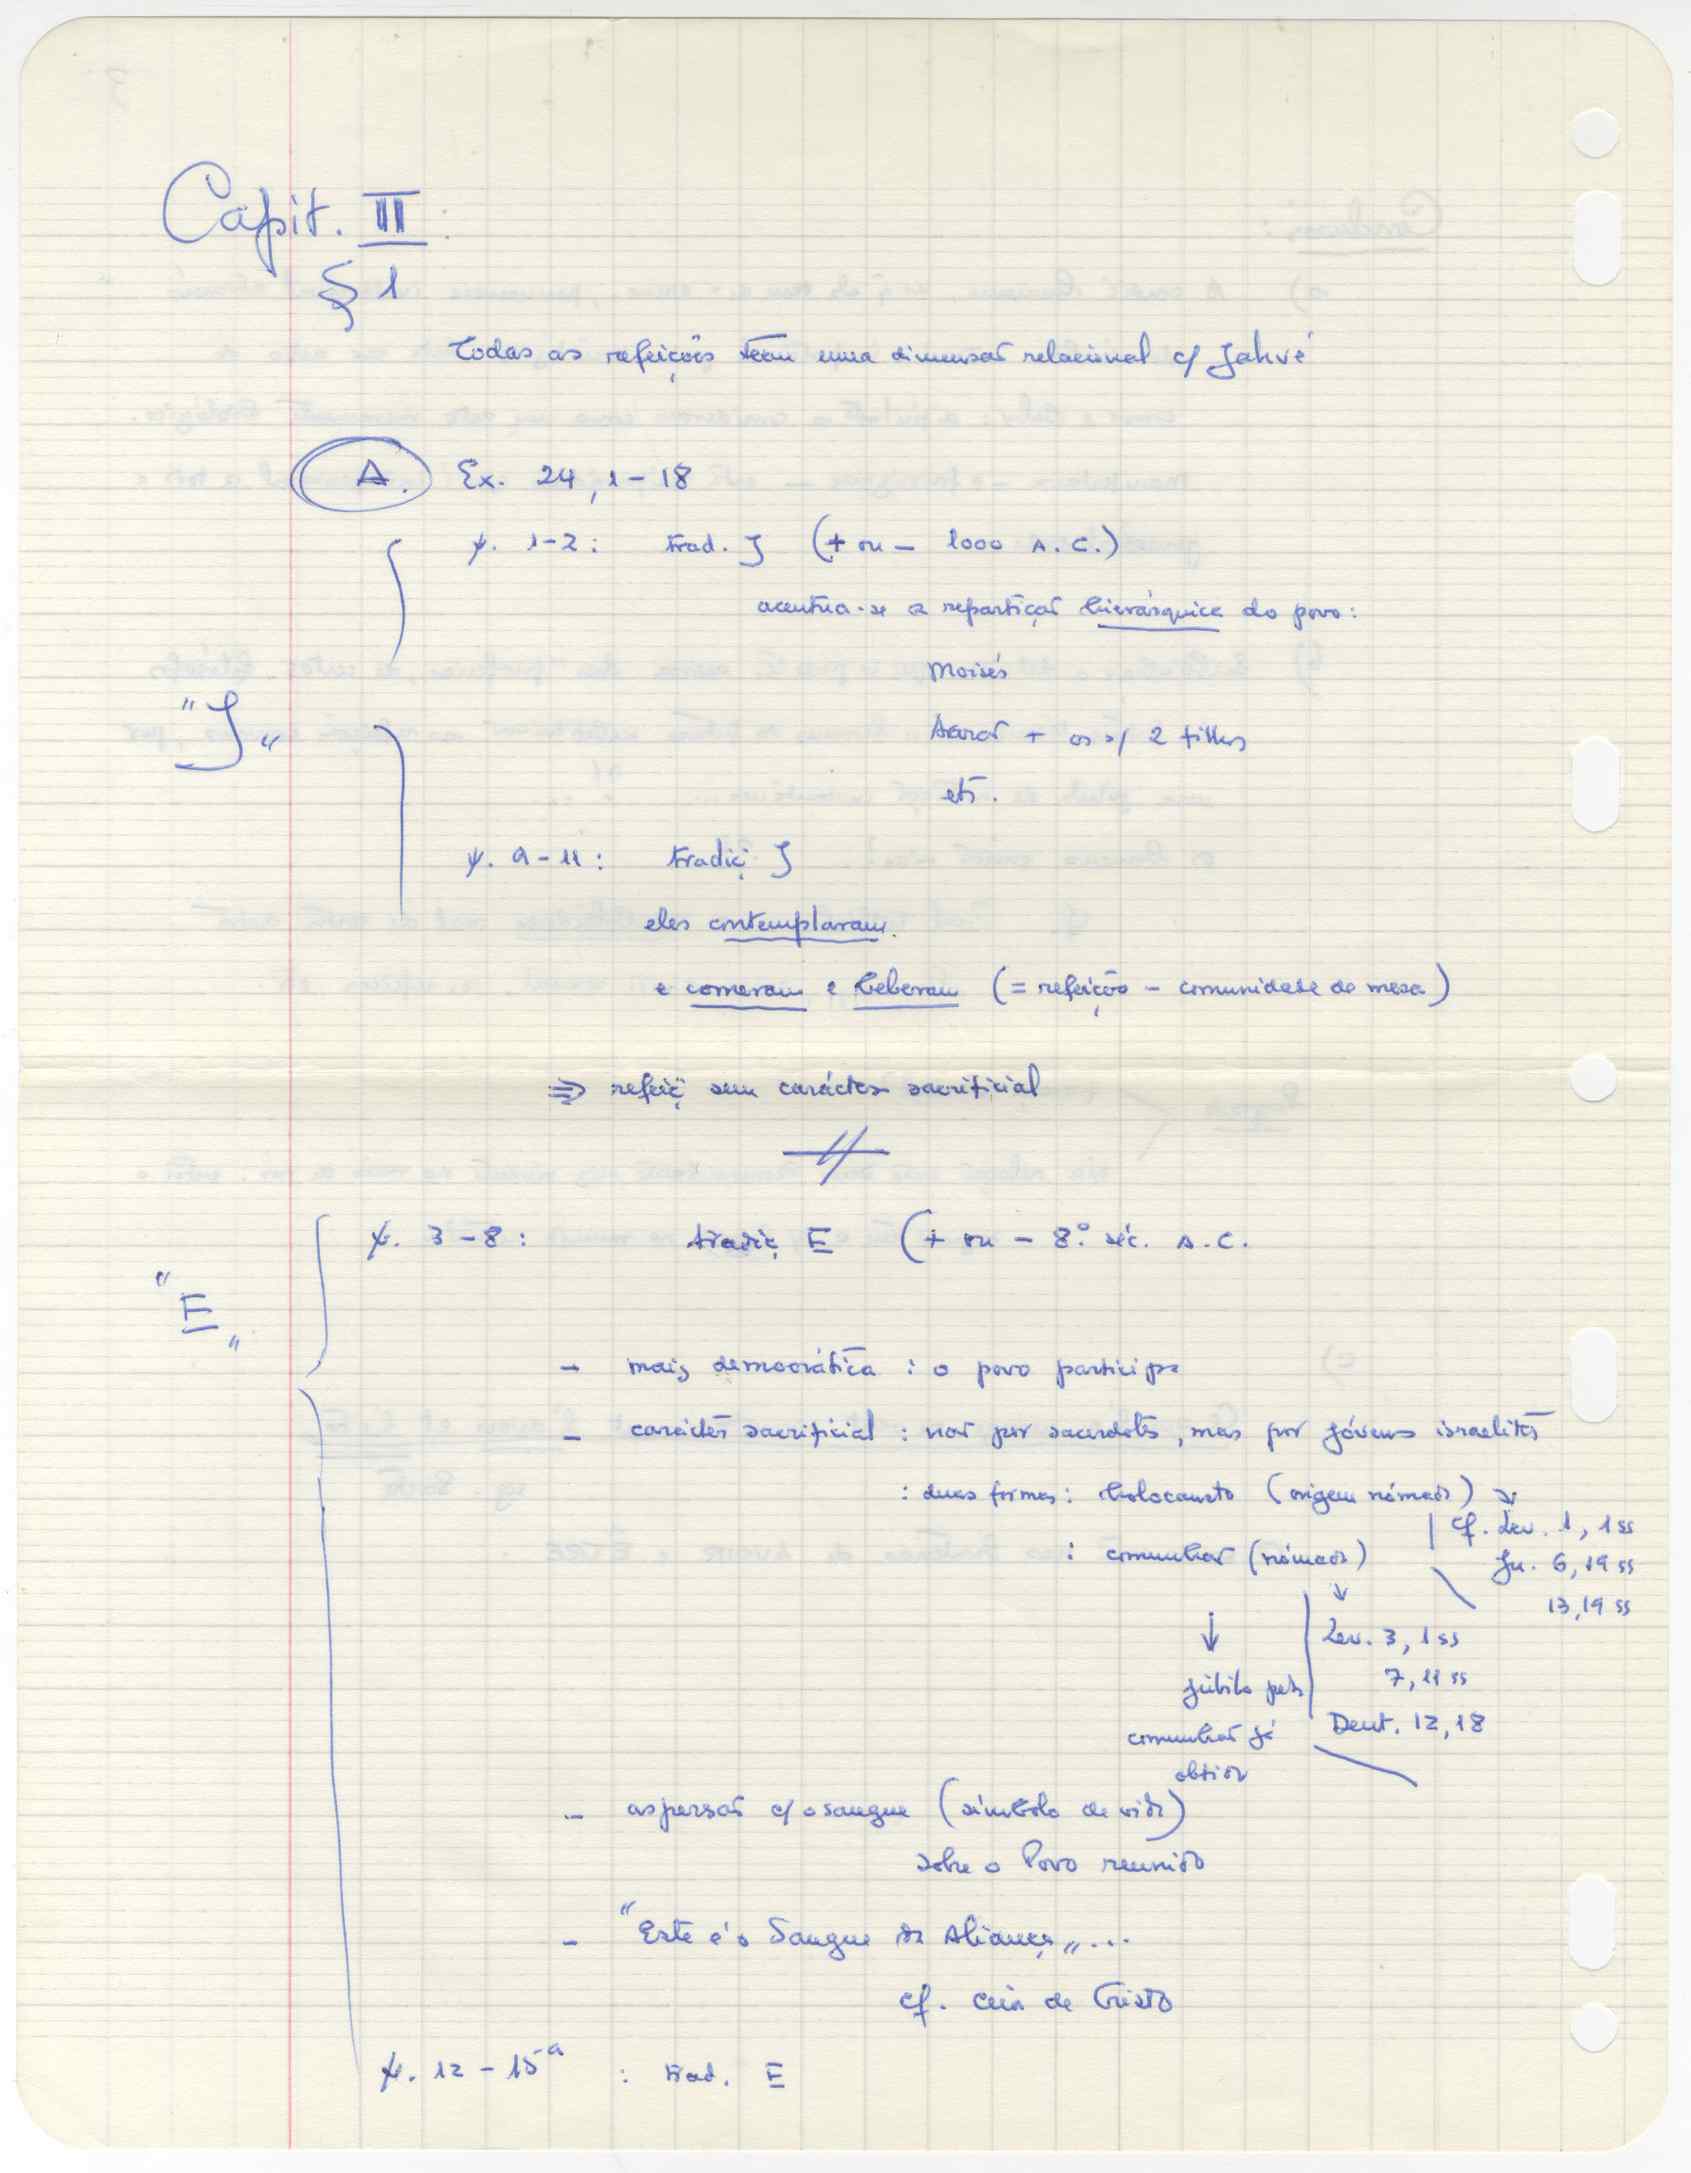 Capit. II
§ 1
Todas as refeições têm uma dimensão relacional c/ Jahvé
A. Ex. 24, 1-18
v. 1-2: trad. J (+ ou - 1000 A.C.)
acentua-se a repartição hierárquica do povo:
Moisés
"J" Aarão + os s/ 2 filhos
etc.
v. 9-11: tradiç. J
eles contemplaram.
e comeram e beberam (= refeição - comunidade de mesa)
⇒ refeiç. sem carácter sacrificial
v. 3-8: tradiç. E (+ ou - 8.º séc. A.C.
"E"
- mais democrática : o povo participa
- carácter sacrificial : não por sacerdotes, mas por jóvens israelitas
: duas formas: holocausto (origem nómada) ↘
cf. Lev. 1, 1 ss
: comunhão (nómada)
Ju. 6, 19 ss
13, 19 ss
↓ ↓
Lev. 3, 1 ss
7, 11 ss
júbilo pela
comunhão já
Deut. 12, 18
obtida
- aspersão c/ o sangue (símbolo de vida)
sobre o Povo reunido
- "Este é o Sangue da Aliança"...
cf. ceia de Cristo
v. 12-15a : trad. E